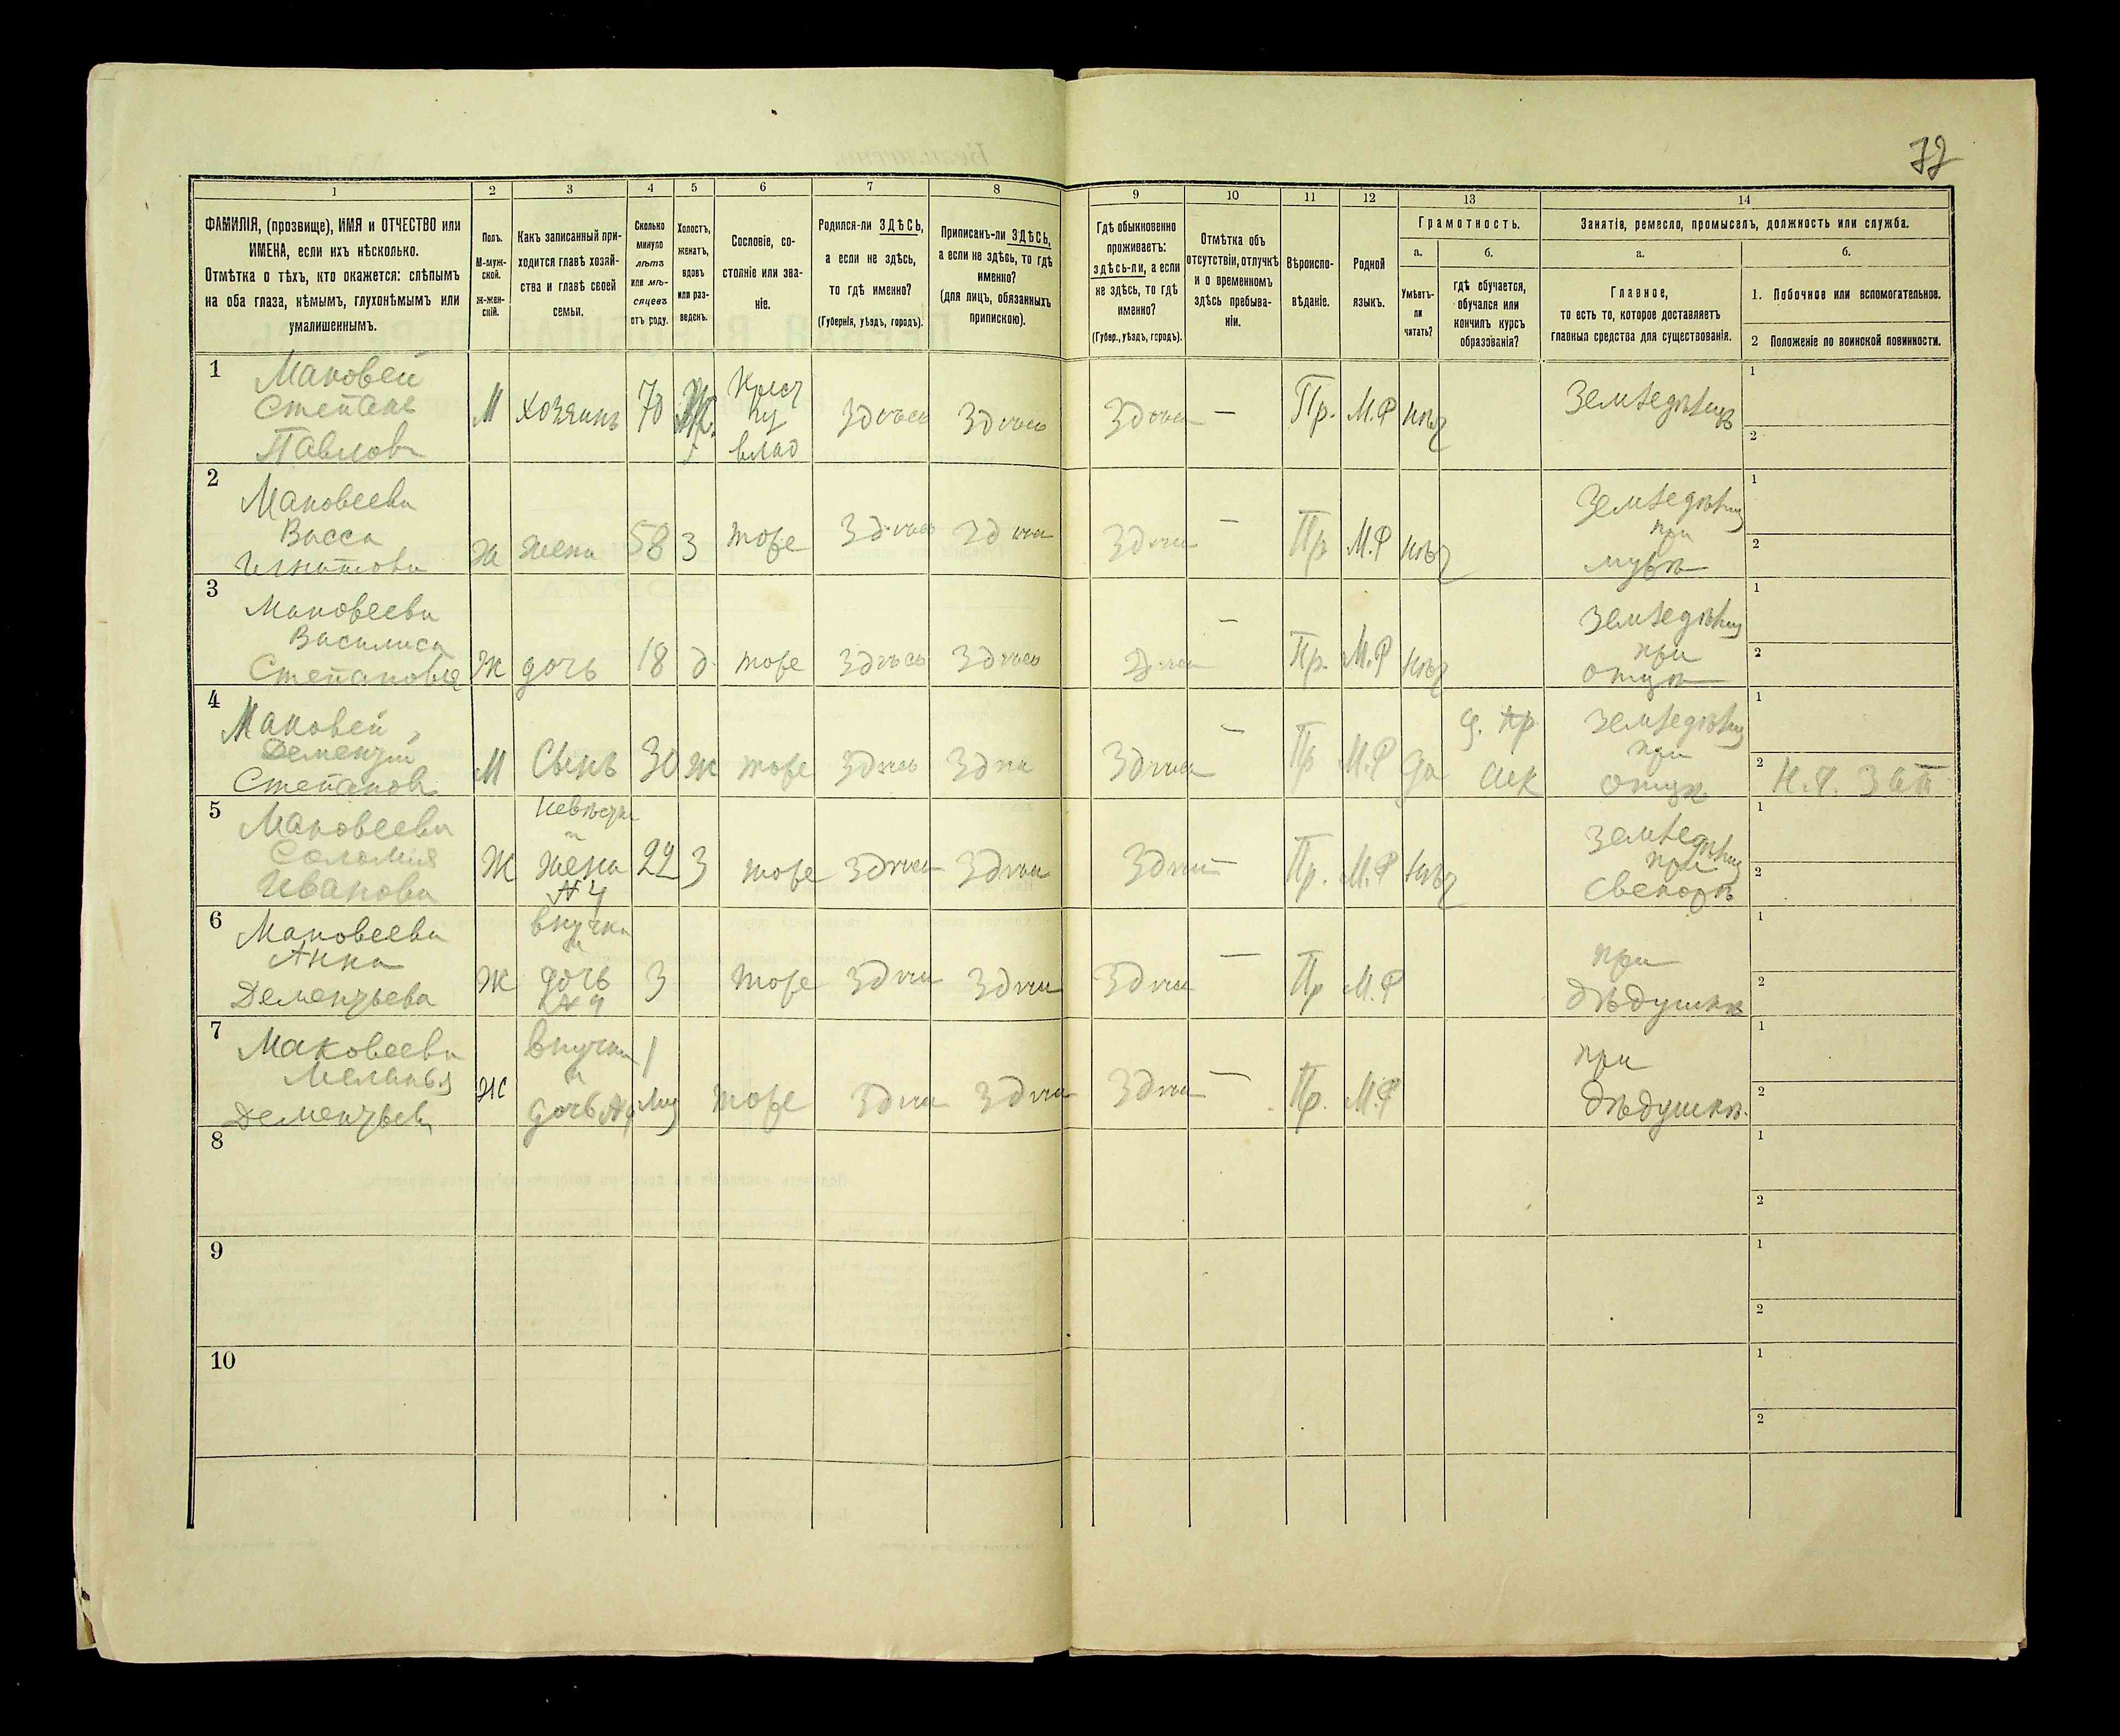 72
1 2 3 4 5 6 7 8 9 10 11 12 13 14
ФАМИЛІЯ, (прозвище), ИМЯ и ОТЧЕСТВО или
ИМЕНА, если ихъ нѣсколько.
Отмѣтка о тѣхъ, кто окажется: слѣпымъ
на оба глаза, нѣмымъ, глухонѣмымъ или
умалишеннымъ.
Полъ.
М-муж-
ской.
ж-жен-
скій.
Какъ записанный при-
ходится главѣ хозяй-
ства и главѣ своей
семьи.
Сколько
минуло
лѣтъ
или мѣ-
сяцевъ
отъ роду.
Холостъ,
женатъ,
вдовъ
или раз-
веденъ.
Сословіе, со-
стояніе или зва-
ніе.
Родился-ли ЗДѢСЬ,
а если не здѣсь,
то гдѣ именно?
(Губернія, уѣздъ, городъ).
Приписанъ-ли ЗДѢСЬ,
а если не здѣсь, то гдѣ
именно?
(для лицъ, обязанныхъ
припискою).
Гдѣ обыкновенно
проживаетъ:
здѣсь-ли, а если
не здѣсь, то гдѣ
именно?
(Губер., уѣздъ, городъ).
Отмѣтка объ
отсутствіи, отлучкѣ
и о временномъ
здѣсь пребыва-
ніи.
Вѣроиспо-
вѣданіе.
Родной
языкъ.
Грамотность.
а.
Умѣетъ-
ли
читать?
б.
гдѣ обучается,
обучался или
кончилъ курсъ
образованія?
Занятія, ремесло, промыселъ, должность или служба.
а.
Главное,
то есть то, которое доставляетъ
главныя средства для существованія.
б.
1. Побочное или вспомогательное.
2 Положеніе по воинской повинности.
1
Маковей
Степанъ
Павловъ
М
хозяинъ
70
Ж.
Крест
влад
Здѣсь
Здѣсь
Здѣсь
—
Пр.
М.Р
нѣт
Землед
1
2
2
Маковеева
Васса
Игнатова
Ж
жена
58
З
тоже
Здѣсь
Здѣсь
Здѣсь
—
Пр
М.Р
нѣт
Землед
при
мужѣ
1
2
3
Маковеева
Василиса
Степанова
Ж
дочь
18
д.
тоже
Здѣсь
Здѣсь
Здѣсь
—
Пр.
М.Р
нѣт
Землед
при
отцѣ
1
2
4
Маковей
Дементій
Степановъ
М
Сынъ
30
ж
тоже
Здѣсь
Здѣсь
Здѣсь
—
Пр
М.Р
да
Землед
при
отцѣ
1
2
5
Маковеева
Соломія
Иванова
Ж
невѣстка
и
жена
№ 4
22
З
тоже
Здѣсь
Здѣсь
Здѣсь
—
Пр.
М.Р
нѣт
Землед
при
свекорѣ
1
2
6
Маковеева
Анна
Дементьева
Ж
внучка
и
дочь
№ 4
3
тоже
Здѣсь
Здѣсь
Здѣсь
—
Пр
М.Р
при
дѣдушкѣ
1
2
7
Маковеева
Меланья
Дементьева
Ж
внучка
и
дочь №4
1
тоже
Здѣсь
Здѣсь
Здѣсь
—
Пр.
М.Р
при
дѣдушкѣ.
1
2
8
1
2
9
1
2
10
1
2